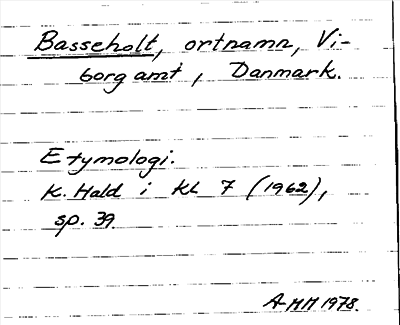 Basseholt, ortnamn, Vi-
borg amt, Danmark.
Etymologi.
K. Hald i KL 7 (1962),
sp. 39.
AMM 1978.